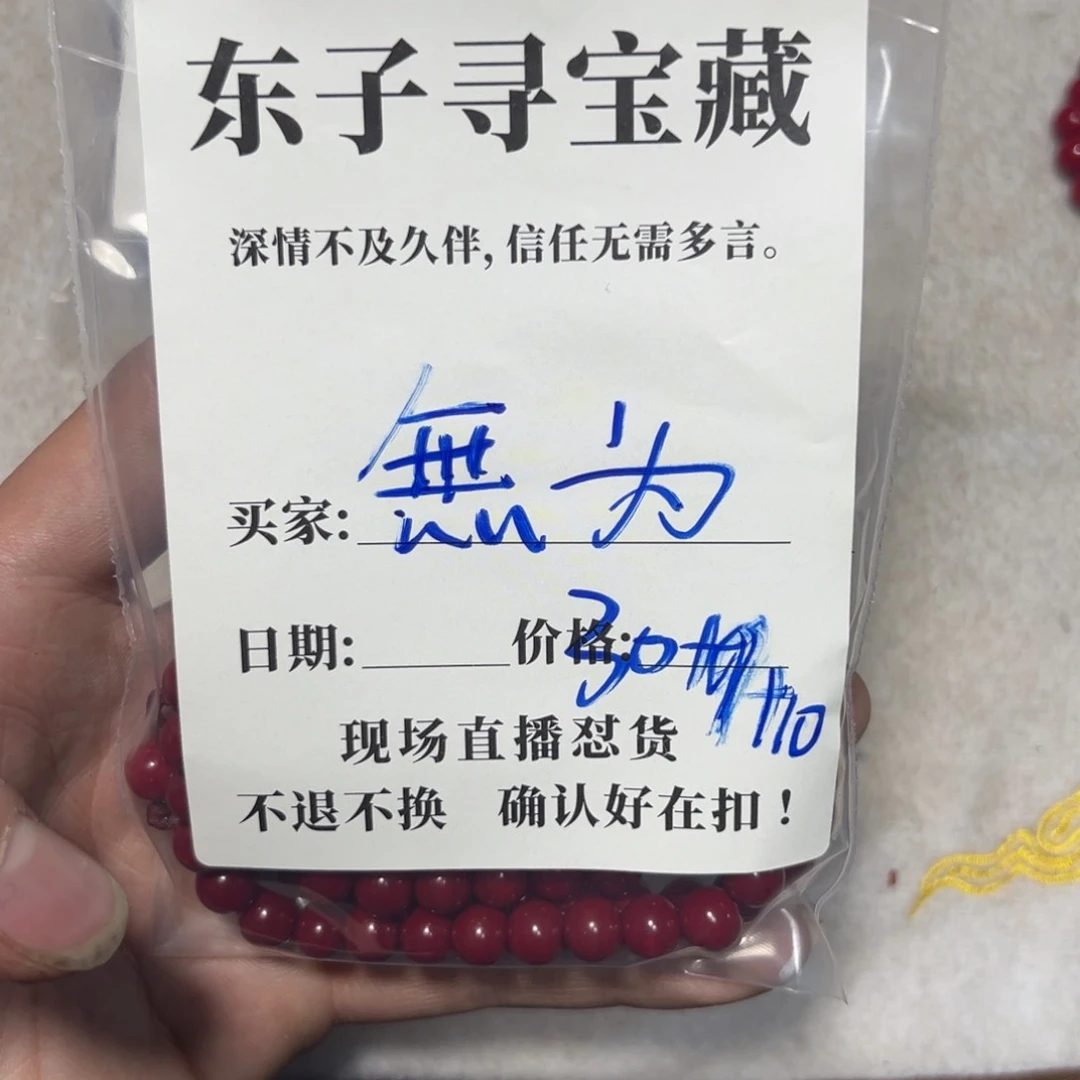 东子寻宝藏
深情不及久伴, 信任无需多言。
买家: 無为
日期: 价格: 30 +10
现场直播怼货
不退不换 确认好在扣!